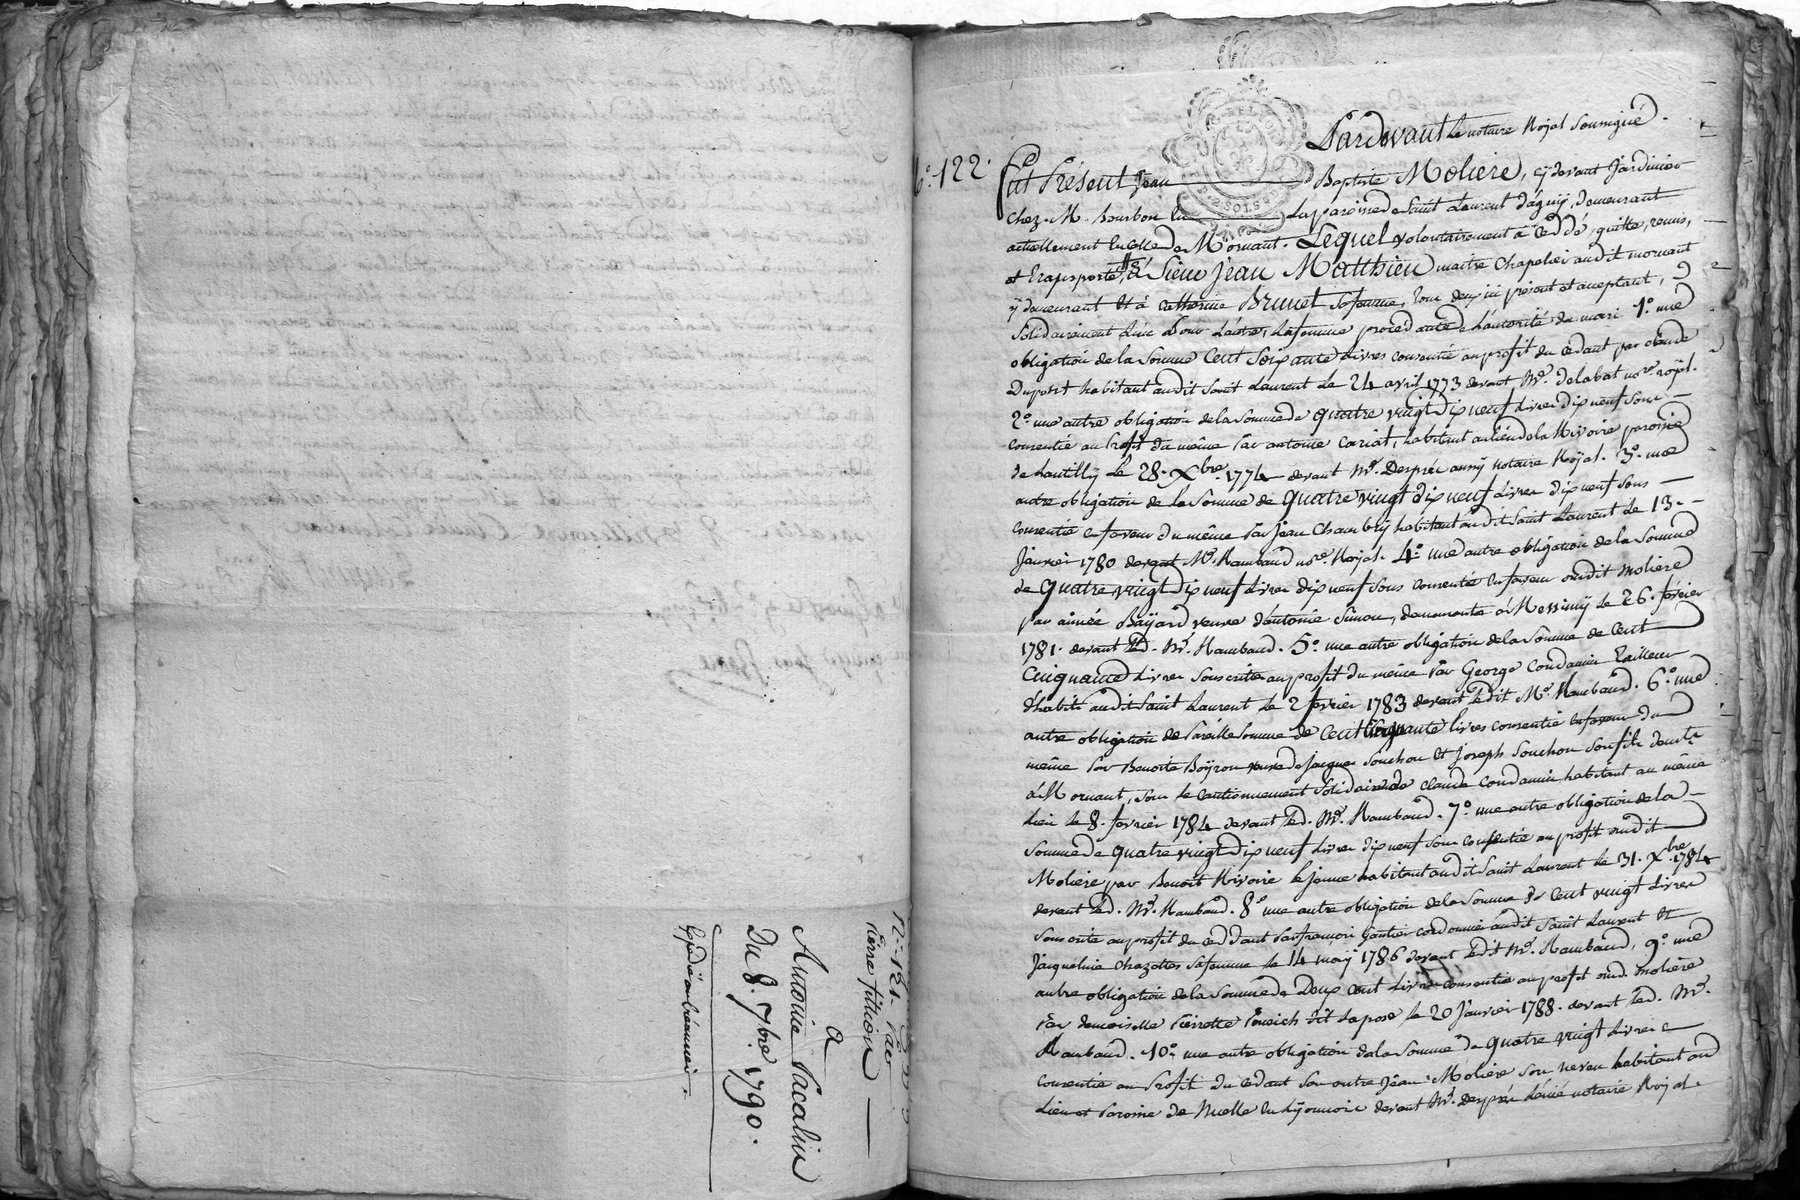 N.° 121. Par
Pierre fillion
a
Antoine Pacalin
Du 8. 7bre. 1790.
Expédié au créancier.
N.° 122.
Pardevant Le notaire Royal soussigné.
Fut Présent Jean Baptiste Moliere, cy devant Jardinier
chez M. Bourbon en La paroisse de Saint Laurent d'agny, demeurant
actuellement en celle de Mornant. Lequel volontairement a Ceddé, quitté, remis,
et transporté, à Sieur Jean Matthieu maitre chapelier audit mornant
ÿ demeurant Et à Catherine Brunet sa femme, tous deux ici présent et acceptant,
solidairement l'un Pour L'autre, La femme procedante de L'autorité du mari 1.° une
obligation de la Somme Cent Soixante Livres consentie au profit du cedant par claude
Duport habitant audit Saint Laurent Le 24 avril 1773 devant Me. delabat nore. roÿal.
2.° une autre obligation de la Somme de quatre vingt dix neuf Livres dix neuf sous
consentie au Profit du même Par antoine Cariat, habitant au lieu de la Rivoire paroisse
de chantilly Le 28. Xbre. 1774 devant Me. Desprée aussy notaire Roÿal. 3.° une
autre obligation de la Somme de quatre vingt dix neuf Livres dix neuf sous
consentie en faveur du même Par Jean Chambry habitant audit Saint Laurent Le 13
Janvier 1780 devant Me. Rambaud nore. Royal. 4.° une autre obligation de la Somme
de quatre vingt dix neuf Livres dix neuf sous consentie en faveur dudit Moliere
par aimée Baÿard veuve d'antoine Simon, demeurante à Messimÿ Le 26. février
1781. devant led. Me. Rambaud. 5.° une autre obligation de la Somme de Cent
Cinquante Livres souscrite au profit du même Par George Condamin tailleur
d'habits audit Saint Laurent Le 2 fevrier 1783 devant ledit Me. Rambaud. 6.° une
autre obligation de Pareille Somme de Cent Cinquante livres consentie en faveur du
même Par Benoite Boÿron veuve de Jacques Souchon Et Joseph Souchon son fils demts.
à Mornant, sous le cautionnement solidaire de claude Condamin habitant au même
Lieu le 8. fevrier 1784 devant led. Me. Rambaud. 7.° une autre obligation de la
Somme de quatre vingt dix neuf Livres dix neuf sous consentie au profit dudit
Moliere par Benoit Rivoire le jeune habitant audit Saint Laurent le 31. Xbre. 1784
devant led. Me. Rambaud. 8.° une autre obligation de la Somme de Cent vingt Livres
souscrite au profit du ceddant Par françois Gautier cordonnier audit Saint Laurent Et
Jacqueline Chazottes sa femme le 14 may 1786 devant ledit Me. Rambaud, 9.° une
autre obligation de la Somme de Deux Cent Livres consentie au profit dud. moliere
Par demoiselle Pierrette dit Lapose le 20 Janvier 1788. devant led. Me.
Rambaud. 10.° une autre obligation de la Somme de quatre vingt Livres
consentie au Profit du cedant Par autre Jean Moliere son neveu habitant au
Lieu et Paroisse de Nuelle en Lÿonnois devant Me. desprée notaire Royal.